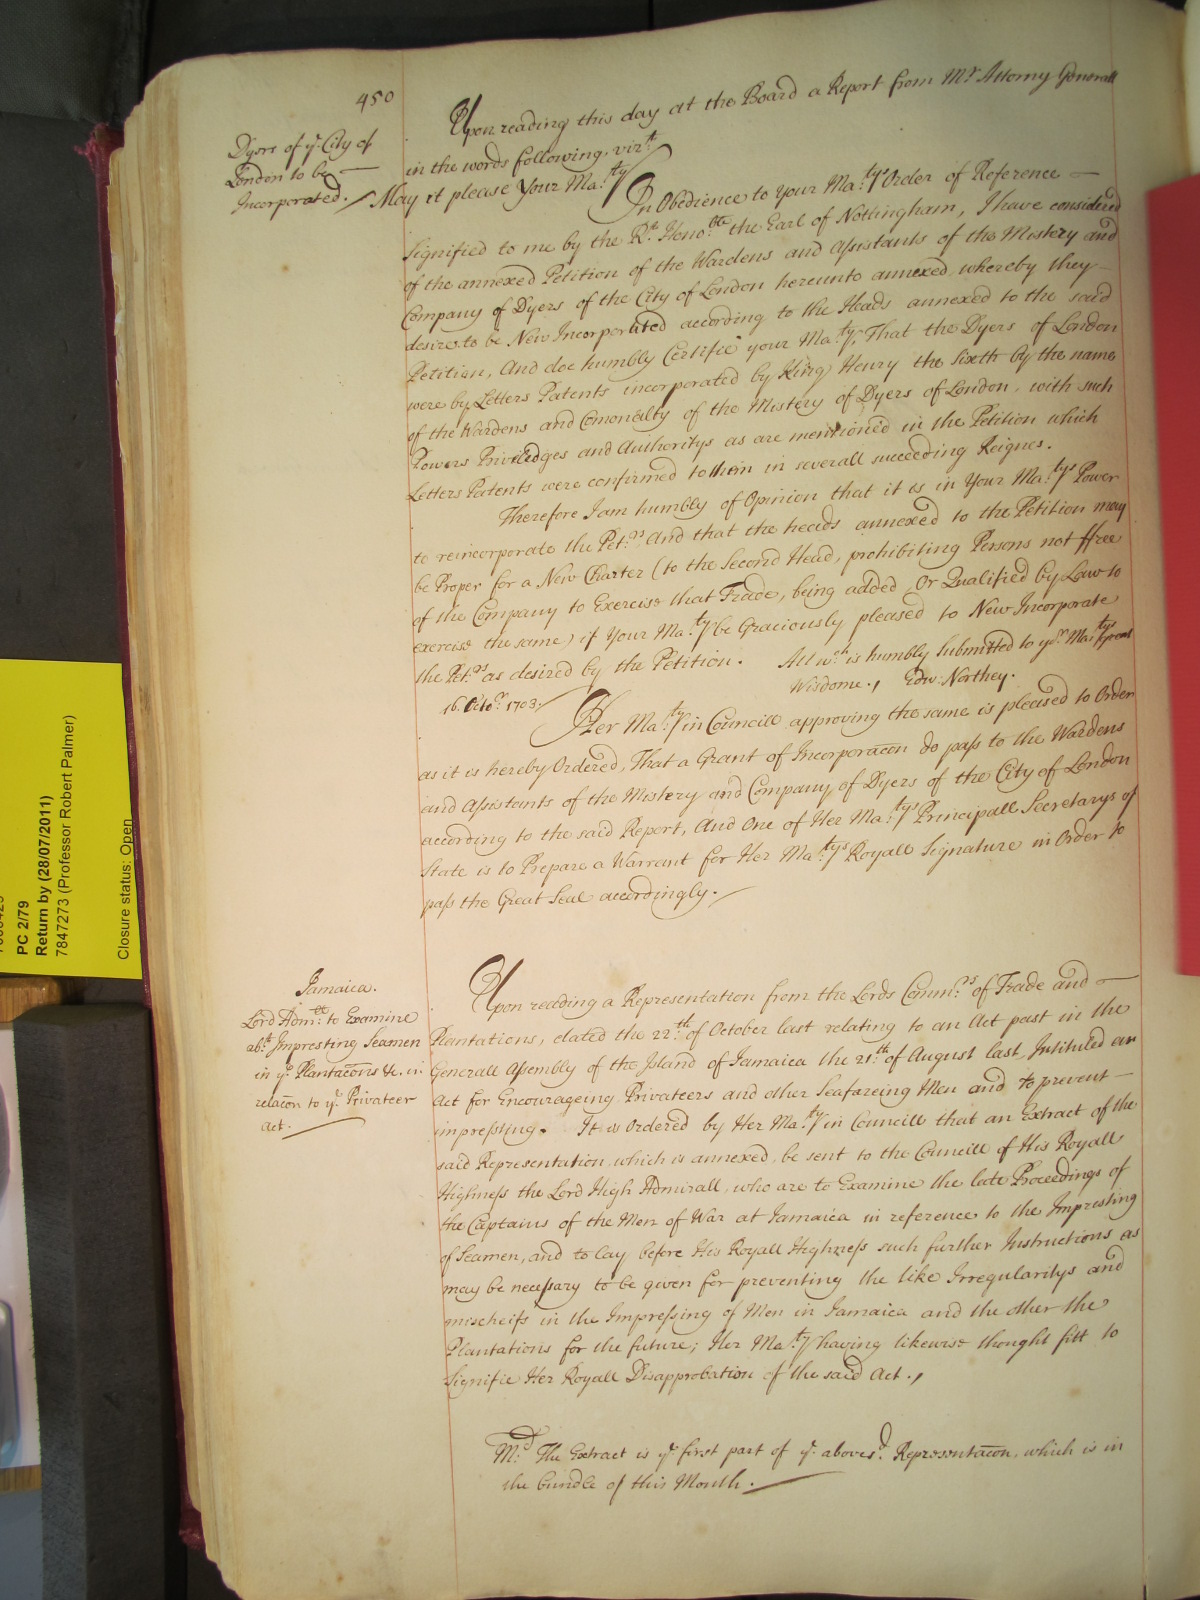 450
Dyers of yᵉ City of
London to be —
Incorporated.
Upon reading this day at the Board a Report from Mʳ Attorny Generall
in the words following, vizᵗ
May it please Your Ma:ᵗʸ
In Obedience to Your Ma:ᵗʸˢ Order of Reference —
Signified to me by the Rᵗ Hono:ᵇˡᵉ the Earl of Nottingham, I have considered
of the annexed Petition of the Wardens and Assistants of the Mistery and
Company of Dyers of the City of London hereunto annexed, whereby they —
desire to be New Incorporated according to the Heads annexed to the said
Petition, And doe humbly Certifie your Ma:ᵗʸ, That the Dyers of London
were by Letters Patents incorporated by King Henry the Sixth by the name
of the Wardens and Comonalty of the Mistery of Dyers of London, with such
Powers Priviledges and Authoritys as are mentioned in the Petition which
Letters Patents were confirmed to them in severall succeeding Reignes.
Therefore I am humbly of Opinion that it is in Your Ma:ᵗʸˢ Power
to reincorporate the Pet:ʳˢ And that the heads annexed to the Petition may
be Proper for a New Charter (to the Second Head, prohibiting Persons not ffree
of the Company to Exercise that Trade, being added, Or Qualified by Law to
exercise the same) if Your Ma:ᵗʸ be Graciously pleased to New Incorporate
the Pet:ʳˢ as desired by the Petition. All wᶜʰ is humbly Submitted to yoʳ Ma:ᵗʸˢ great
Wisdome., Edw: Northey.
16. Octoʳ: 1703.
Her Ma:ᵗʸ in Councill approving the same is pleased to Order
as it is hereby Ordered, That a Grant of Incorporacon do pass to the Wardens
and Assistants of the Mistery and Company of Dyers of the City of London
according to the said Report, And One of Her Ma:ᵗʸˢ Principall Secretarys of
State is to Prepare a Warrant for Her Ma:ᵗʸˢ Royall Signature in Order to
pass the Great Seal accordingly.
Jamaica.
Lord Adm:ˡˡ to Examine
abᵗ Impresting Seamen
in yᵉ Plantacons &c. in
relacon to yᵉ Privateer
Act.
Upon reading a Representation from the Lords Comm:ʳˢ of Trade and —
Plantations, dated the 22:ᵗʰ of October last relating to an Act past in the
Generall Assembly of the Island of Jamaica the 21:ᵗʰ of August last, Intituled an
Act for Encourageing Privateers and other Seafareing Men and to prevent —
impressing. It is Ordered by Her Ma:ᵗʸ in Councill that an Extract of the
said Representation, which is annexed, be sent to the Councill of His Royall
Highness the Lord High Admirall, who are to Examine the late Proceedings of
the Captains of the Men of War at Jamaica in reference to the Impresting
of Seamen, and to lay before His Royall Highness such further Instructions as
may be necessary to be given for preventing the like Irregularitys and
mischeifs in the Impressing of Men in Jamaica and the other the
Plantations for the future; Her Ma:ᵗʸ having likewise thought fitt to
Signifie Her Royall Disapprobation of the said Act.,
M:ᵈ The Extract is yᵉ first part of yᵉ aboves:ᵈ Representacon, which is in
the bundle of this Month.
PC 2/79
Return by (28/07/2011)
7847273 (Professor Robert Palmer)
Closure status: Open